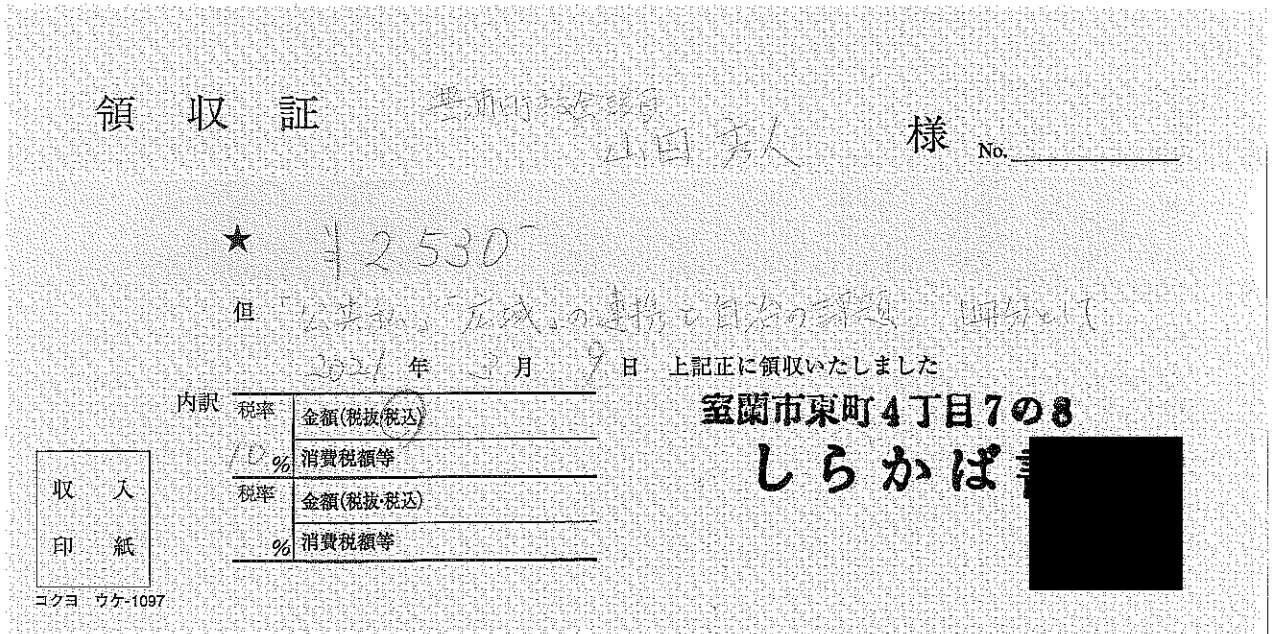 領収証 議会議員 様 No.
山田
★ ¥2530-
但 「公共私」「広域」の連携と自治の課題 1冊分として
2021年 3月 9日 上記正に領収いたしました
内訳 税率 金額(税抜・税込)
10% 消費税額等
税率 金額(税抜・税込)
% 消費税額等
室蘭市東町4丁目7の8
しらかば
収入
印紙
コクヨ ウケ-1097